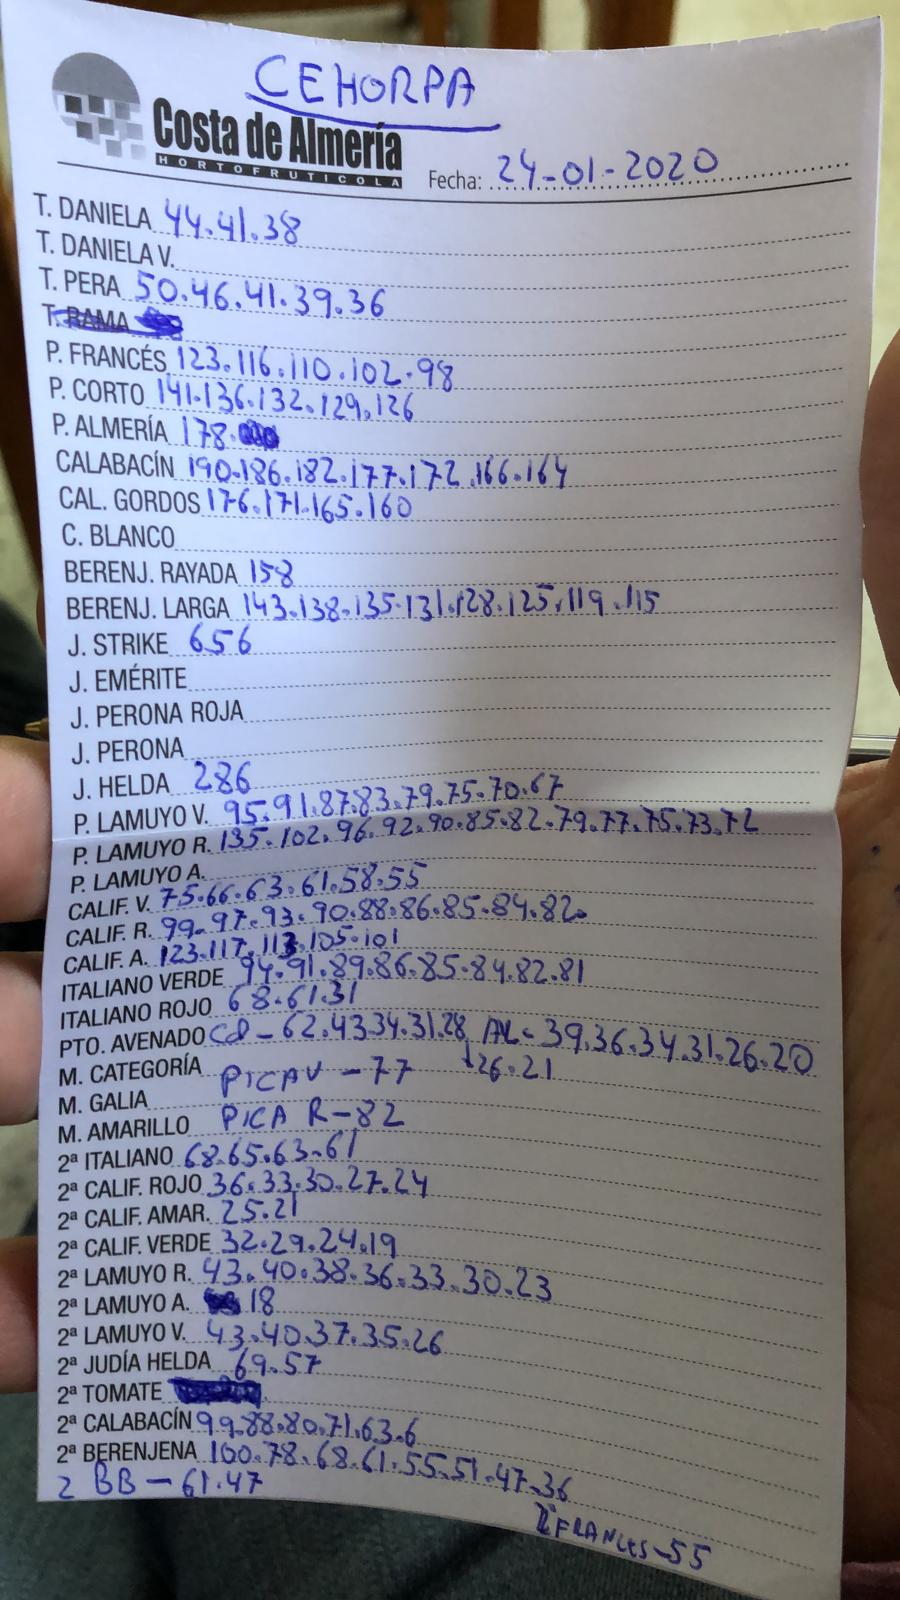 CEHORPA
Costa de Almería
HORTOFRUTICOLA
Fecha: 24-01-2020
T. DANIELA 44.41.38
T. DANIELA V.
T. PERA 50.46.41.39.36
T. RAMA
P. FRANCÉS 123.116.110.102.98
P. CORTO 141.136.132.129.126
P. ALMERÍA 178.
CALABACÍN 190.186.182.177.172.166.164
CAL. GORDOS 176.171.165.160
C. BLANCO
BERENJ. RAYADA 158
BERENJ. LARGA 143.138.135.131.128.125.119.115
J. STRIKE 656
J. EMÉRITE
J. PERONA ROJA
J. PERONA
J. HELDA 286
P. LAMUYO V. 95.91.87.83.79.75.70.67
P. LAMUYO R. 135.102.96.92.90.85.82.79.77.75.73.72
P. LAMUYO A.
CALIF. V. 75.66.63.61.58.55
CALIF. R. 99.97.93.90.88.86.85.84.82.
CALIF. A. 123.117.113.105.101
ITALIANO VERDE 94.91.89.86.85.84.82.81
ITALIANO ROJO 68.61.31
PTO. AVENADO CO-62.43.34.31.28 AL-39.36.34.31.26.20
M. CATEGORÍA PICA V-77 ↓26.21
M. GALIA
M. AMARILLO PICA R-82
2ª ITALIANO 68.65.63.61
2ª CALIF. ROJO 36.33.30.27.24
2ª CALIF. AMAR. 25.21
2ª CALIF. VERDE 32.29.24.19
2ª LAMUYO R. 43.40.38.36.33.30.23
2ª LAMUYO A. 18
2ª LAMUYO V. 43.40.37.35.26
2ª JUDÍA HELDA 69.57
2ª TOMATE
2ª CALABACÍN 99.88.80.71.63.6
2ª BERENJENA 100.78.68.61.55.51.47.36
2 BB-61.47
2ª FRANCES-55